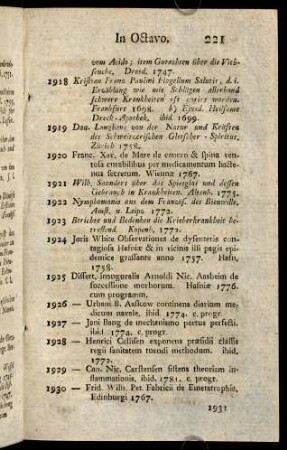 In Octavo. 221
vom Acido; item Gutachten über die Vieh-
seuche. Dresd. 1747.
1918 Kristian Franz Paulini Flagellum Salutis, d. i.
Erzählung wie mit Schlägen allerhand
schwere Krankheiten oft curirt worden.
Frankfurt 1698. b) Ejusd. Heilsame
Dreck-Apothek. ibid 1699.
1919 Dan. Langhans von der Natur und Kräften
des Schweizerischen Gletscher-Spiritus,
Zürich 1758.
1920 Franz. Xav. de Mare de cancro & spina ven-
tosa curabilibus per medicamentum hacte-
nus secretum. Wienne 1767.
1921 Wilh. Saunders über das Spiesglas und dessen
Gebrauch in Krankheiten. Altenb. 1774.
1922 Nymphomania aus dem Französ. des Bienville,
Amst. u. Leipz. 1772.
1923 Berichte und Bedenken die Kriebelkrankheit be-
treffend. Kopenh. 1772.
1924 Joris White Observationes de dysenteria con-
tagiosa Hafniæ & in vicinia illi pagis epi-
demice grassante anno 1757. Hafn.
1758.
1925 Dissert. inauguralis Arnoldi Nic. Aasheim de
successione morborum. Hafniæ 1776.
cum programm.
1926 — Urbani B. Aaskow continens diarium me-
dicum navale, ibid. 1774. c. progr.
1927 — Jani Bang de mechanismo partus perfecti.
ibid. 1774. c. progr.
1928 — Henrici Callisen exponens præsidii classis
regii sanitatem tuendi methodum. ibid.
1772.
1929 — Can. Nic. Carstensen sistens theoriam in-
flammationis, ibid. 1781. c. progr.
1930 — Frid. Wilh. Pet. Fabricii de Emetatrophia,
Edinburgi 1767.
1931